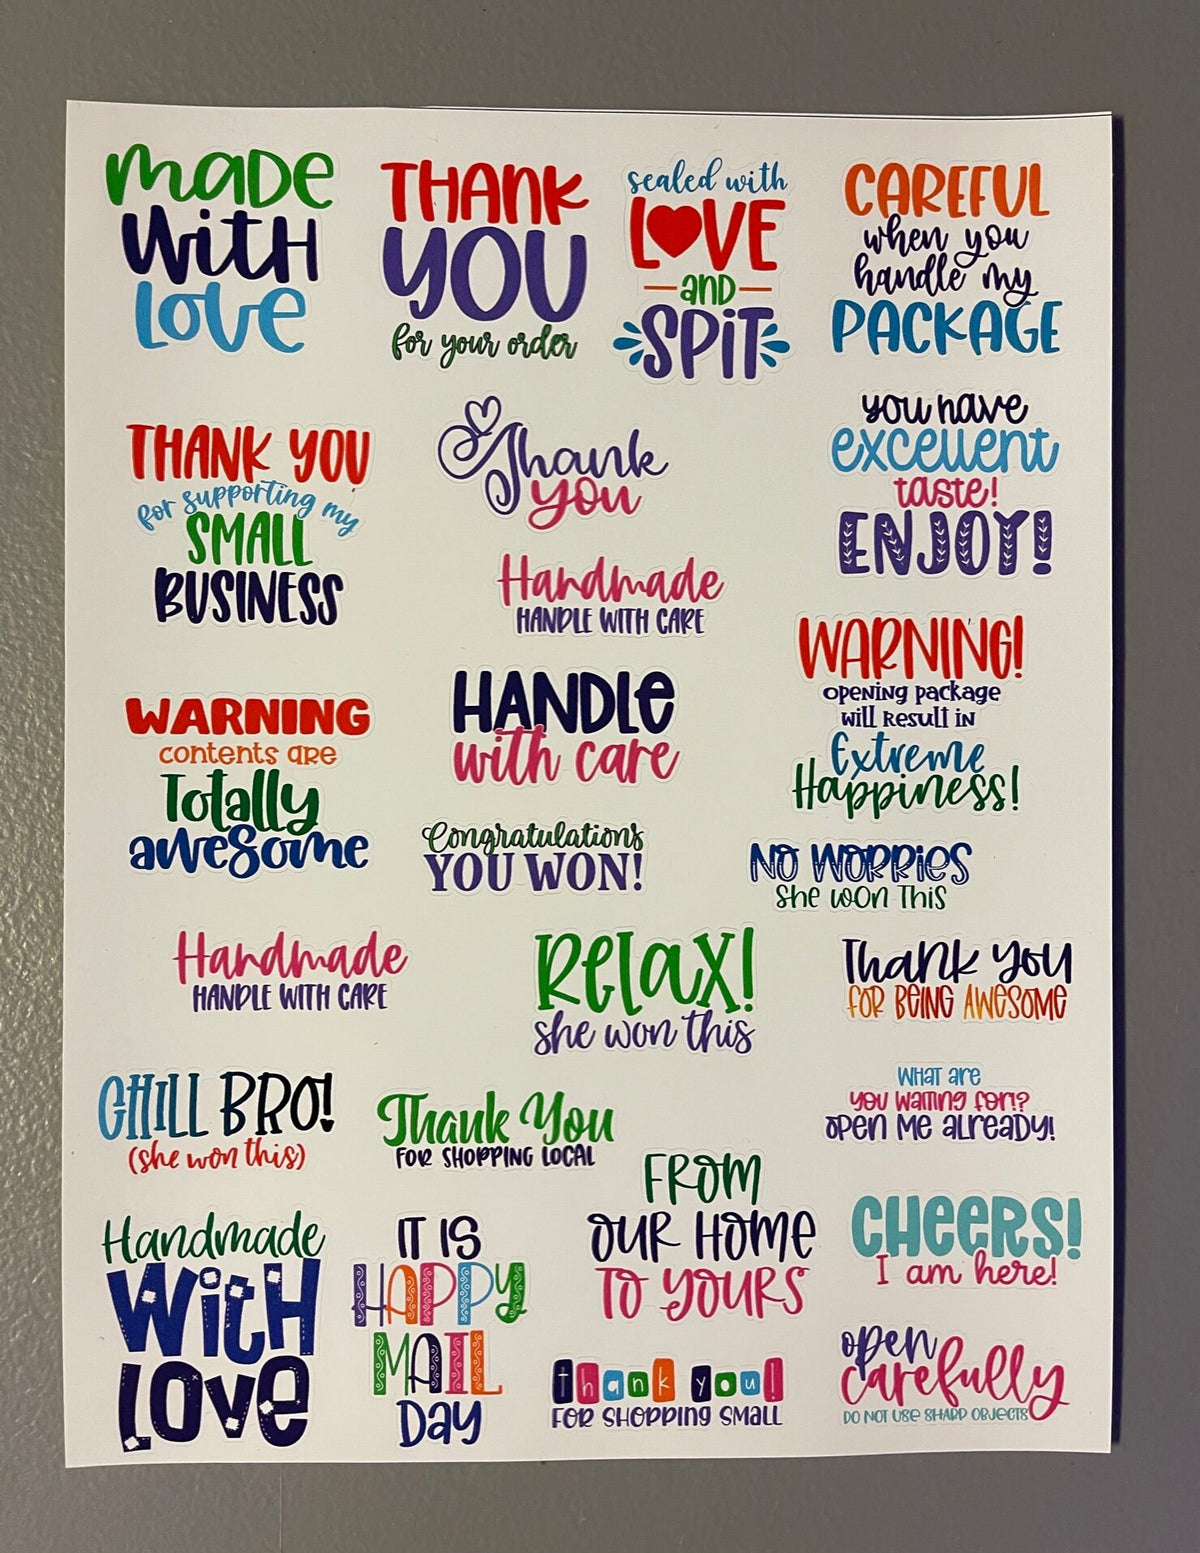 made
with
love
THANK
YOU
for your order
sealed with
LOVE
AND
SPIT
CAREFUL
when you
handle my
PACKAGE
THANK YOU
for supporting my
SMALL
BUSINESS
Thank
you
you have
excellent
taste!
ENJOY!
Handmade
HANDLE WITH CARE
WARNING!
opening package
will result in
Extreme
Happiness!
WARNING
contents are
Totally
awesome
HANDLe
with care
Congratulations
YOU WON!
NO WORRIES
She won This
Handmade
HANDLE WITH CARE
Relax!
she won this
Thank you
FOR BEING AWESOME
CHILL BRO!
(she won this)
Thank You
FOR SHOPPING LOCAL
WHAT ARE
you waiting for!?
open me already!
Handmade
With
Love
IT IS
HAPPY
MAIL
Day
FROM
OUR HOME
TO YOURS
CHeeRS!
I am here!
thank you!
FOR SHOPPING SMALL
open
carefully
DO NOT USE SHARP OBJECTS